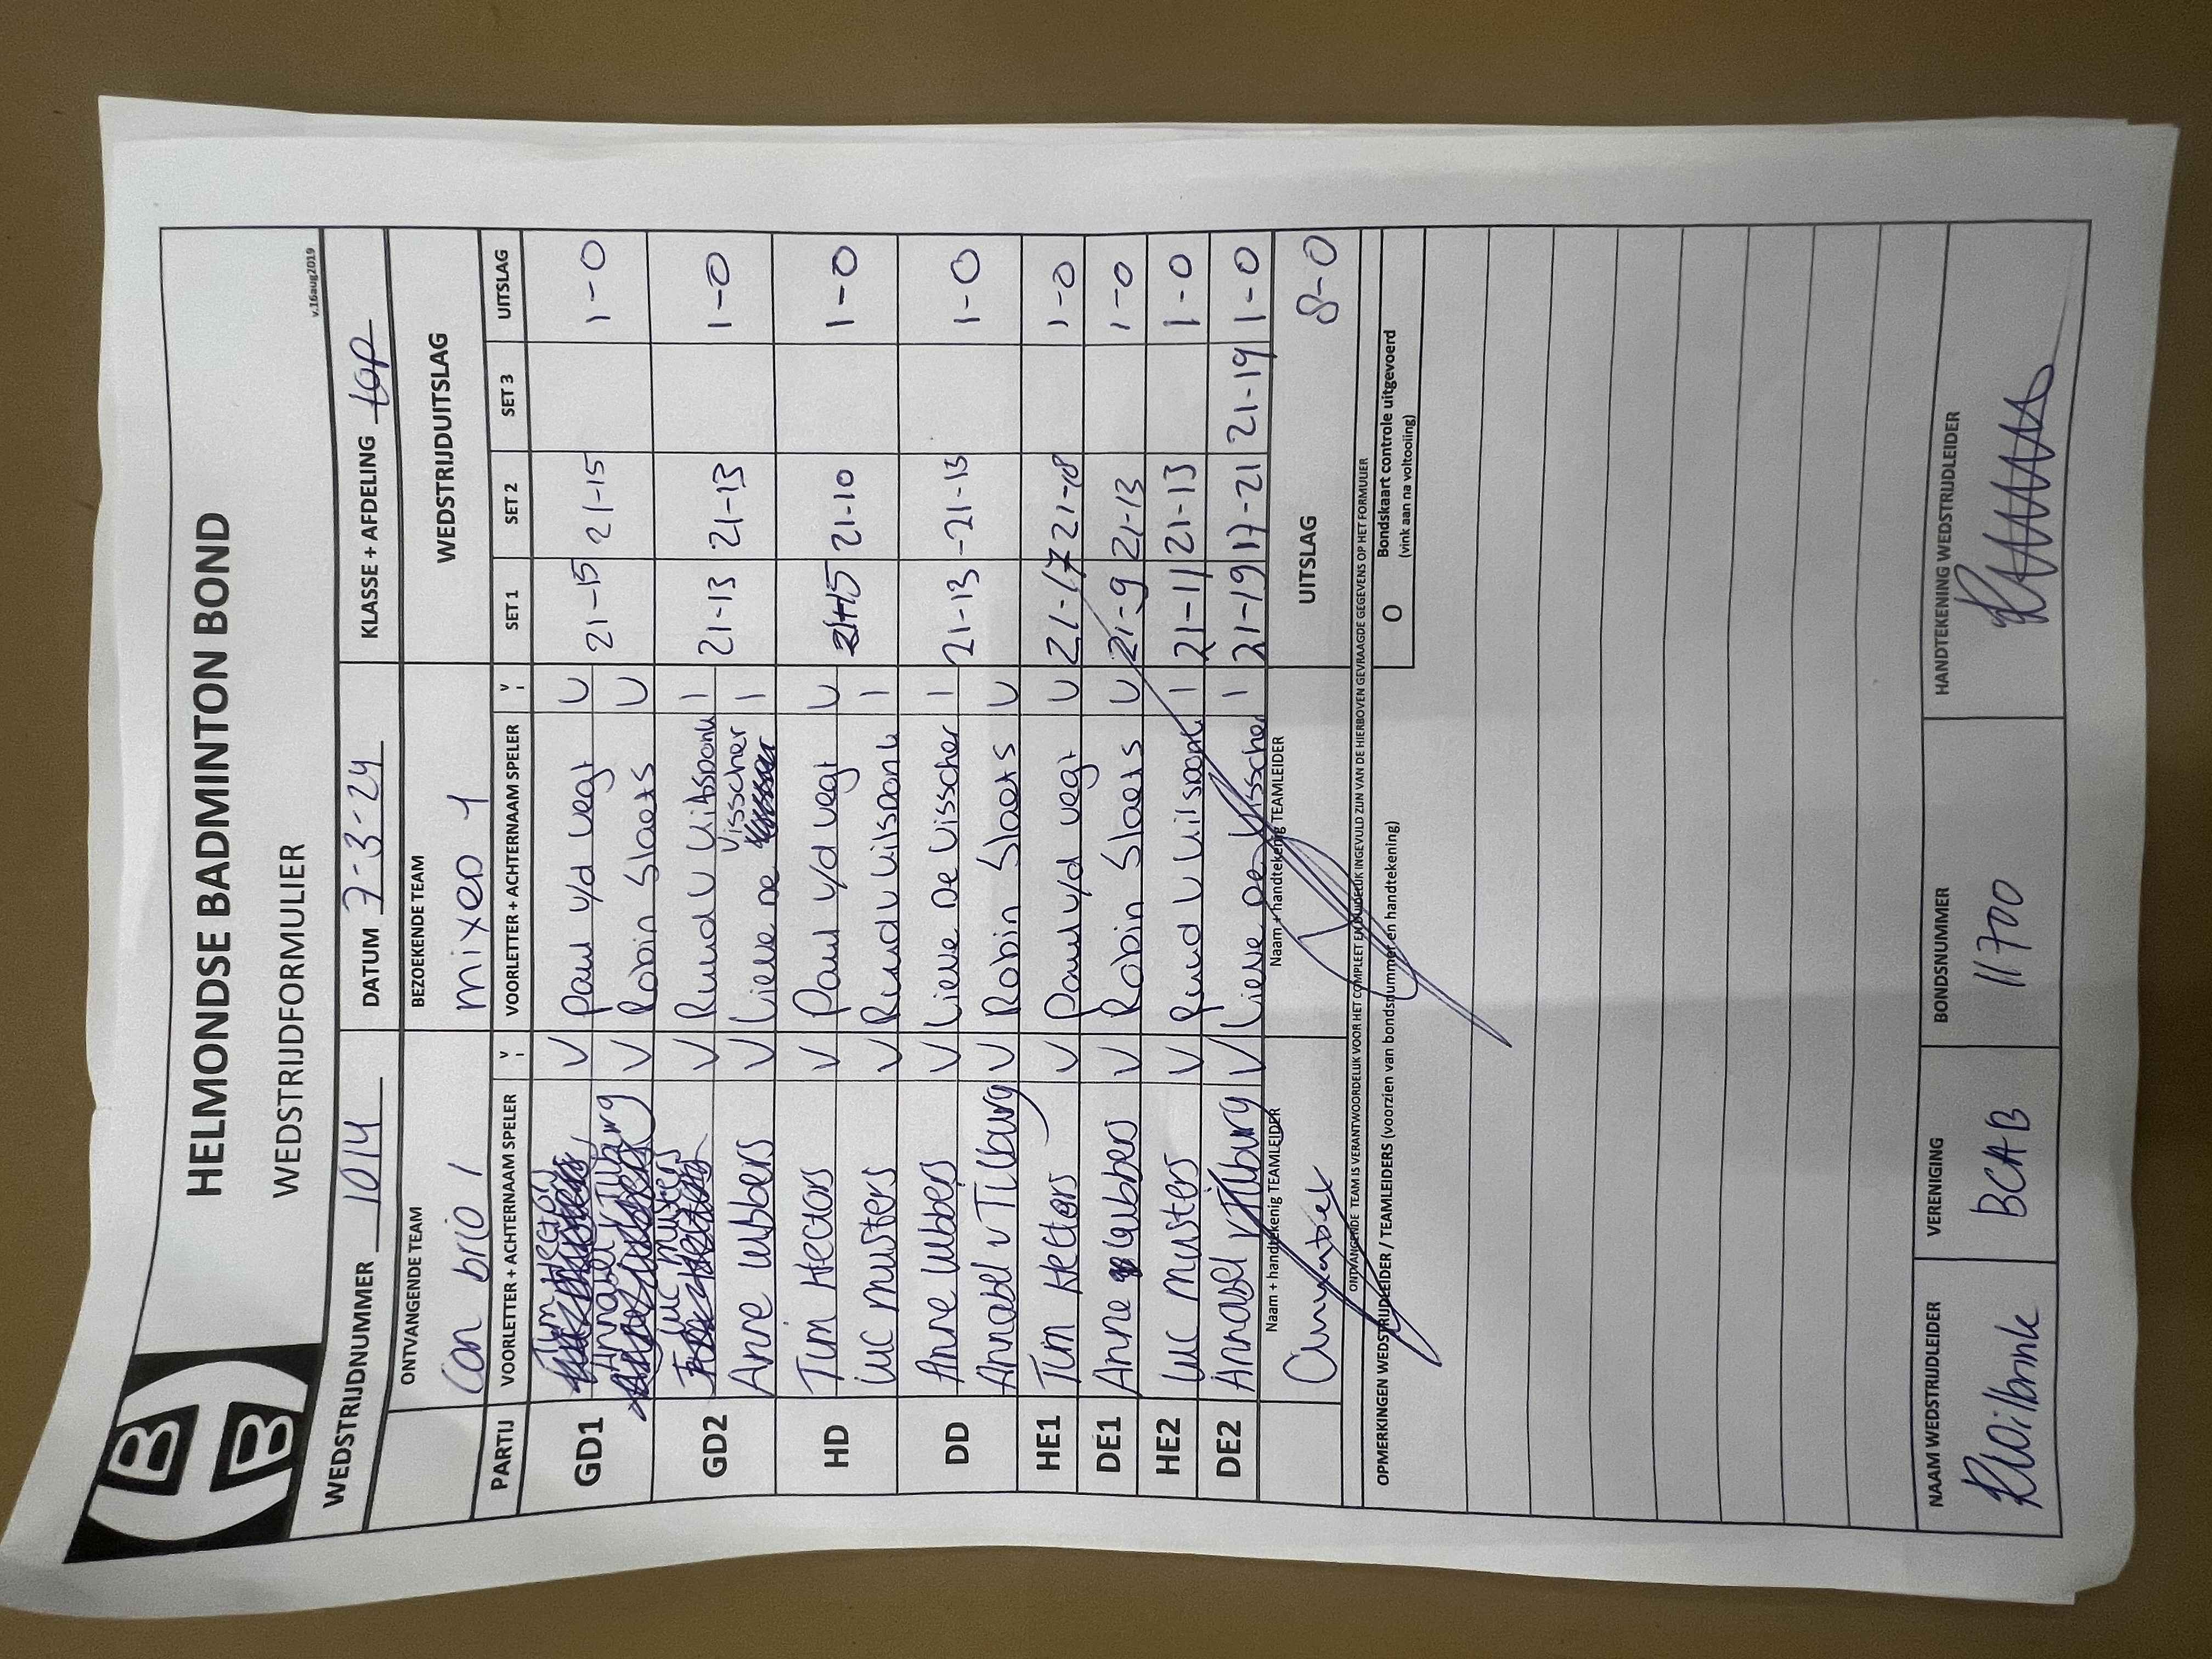 HELMONDSE BADMINTON BOND
WEDSTRIJDFORMULIER
v.16aug2019
WEDSTRIJDNUMMER 1014 DATUM 7-3-24 KLASSE + AFDELING top
ONTVANGENDE TEAM BEZOEKENDE TEAM WEDSTRIJDUITSLAG
Con brio 1 mixed 1
PARTIJ VOORLETTER + ACHTERNAAM SPELER V I VOORLETTER + ACHTERNAAM SPELER V I SET 1 SET 2 SET 3 UITSLAG
GD1 Tim Hectors V Paul v/d vegt U 21-15 21-15 1-0
Annabel v Tilburg V Robin Slaets U
GD2 Luc Musters V Ruud v Uilsponk 1 21-13 21-13 1-0
Anne Lubbers V Lieve De Visscher 1
HD Tim Hectors V Paul v/d vegt U 21-15 21-10 1-0
Luc musters V Ruud v uilsponk 1
DD Anne Lubbers V Lieve De Visscher 1 21-13 -21-13 1-0
Annabel v Tilburg V Robin Slaets U
HE1 Tim Hectors V Paul v/d vegt U 21-17 21-18 1-0
DE1 Anne Lubbers V Robin Slaets U 21-9 21-13 1-0
HE2 Luc musters V Ruud v uilsponk 1 21-11 21-13 1-0
DE2 Annabel v Tilburg V Lieve De Visscher 1 21-19 17-21 21-19 1-0
Naam + handtekenig TEAMLEIDER Naam + handtekenig TEAMLEIDER UITSLAG 8-0
ONTVANGENDE TEAM IS VERANTWOORDELIJK VOOR HET COMPLEET EN DUIDELIJK INGEVULD ZIJN VAN DE HIERBOVEN GEVRAAGDE GEGEVENS OP HET FORMULIER
OPMERKINGEN WEDSTRIJDLEIDER / TEAMLEIDERS (voorzien van bondsnummer en handtekening) O Bondskaart controle uitgevoerd
(vink aan na voltooiing)
NAAM WEDSTRIJDLEIDER VERENIGING BONDSNUMMER HANDTEKENING WEDSTRIJDLEIDER
BCAB 11700